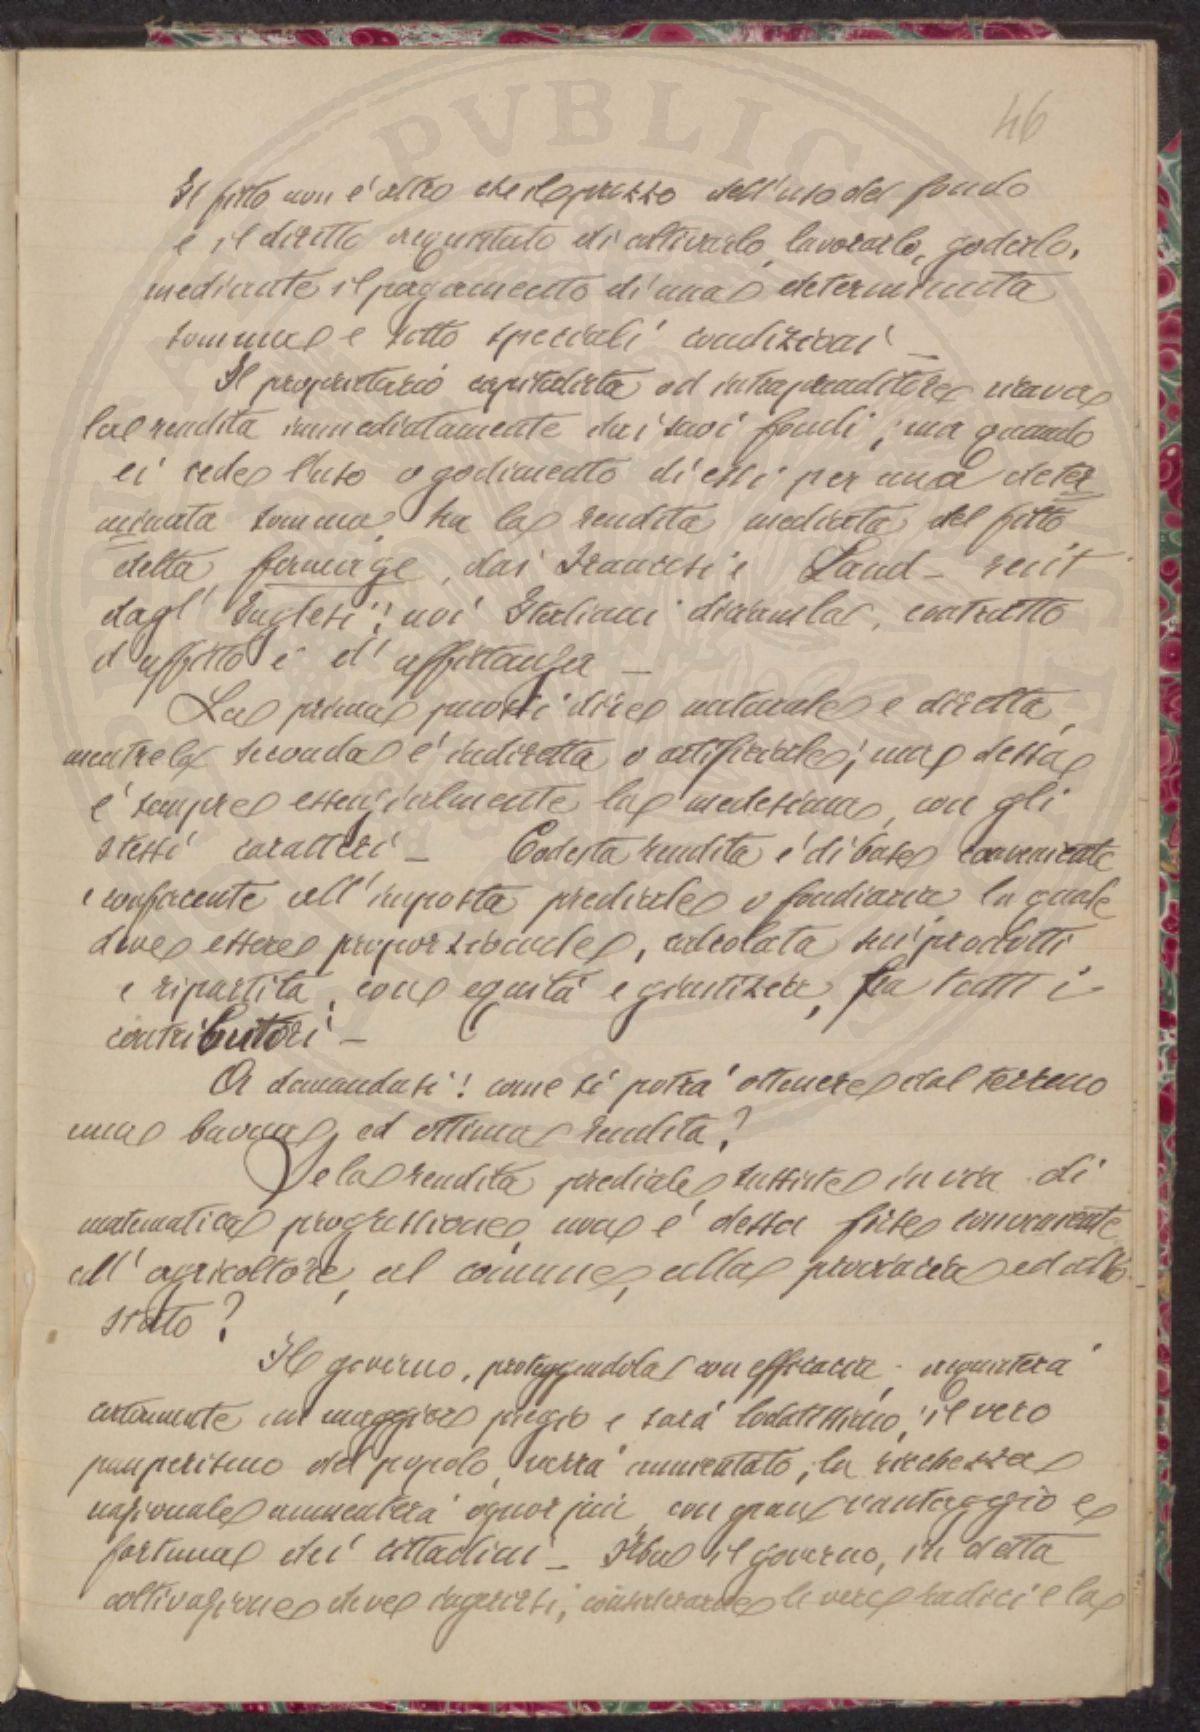 46
Il fitto non é altro che il prezzo dell'uso del fondo
e il diritto acquistato di coltivarlo, lavorarlo, goderlo,
mediante il pagamento di una determinata
somma e sotto speciali condizioni _
Il proprietario capitalista od intraprenditore ricava
la rendita immediatamente dai suoi fondi; ma quando
ei cede l'uso o godimento di essi per una deter
minata somma, ha la rendita mediata del fitto,
detta fermage, dai Francesi e Land - rent
dagl' Inglesi; noi Italiani diciamla, contratto
d'affitto e d'affittanza _
La prima puossi dire naturale e diretta,
mentre la seconda é indiretta o artificiale; ma dessa
é sempre essenzialmente la medesima, con gli
stessi caratteri _ Codesta rendita é di base conveniente
e confacente all'imposta prediale o fondiaria la quale
deve essere proporzionale, calcolata sui prodotti
e ripartita, con equitá e giustizia, fra tutti i
contributori _
Or domandasi! come si potrá ottenere dal terreno
una buona, ed ottima rendita?
Se la rendita prediale sussiste in via di
matematica progressione, non é dessa forse conveniente
all' agricoltore, al comune, alla provincia ed allo
stato?
Il governo, proteggendola con efficacia, acquisterá
certamente un maggior pregio e sará lodatissimo, il vero
pauperismo del popolo, verrá la ricchezza
nazionale aumenterá ognor piú con gran vantaggio e
fortuna dei cittadini _ il governo, in detta
coltivazione deve ingerirsi, considerarne le vere radici e la
PVBLIC